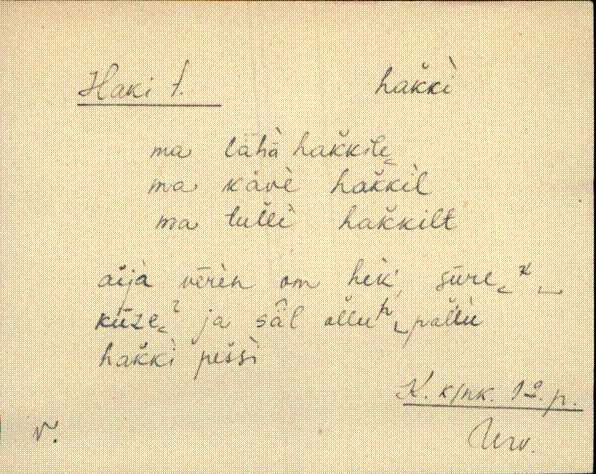 Haki t. hak̆k̀i
ma lähä hak̆kile
ma käve hak̆kil
ma tulli hak̆kilt
aija vēren om hek', sūre
küze ja säl ollu pallu
hak̆ki pessi
K. k/nk. 12. p.
v. Urv.